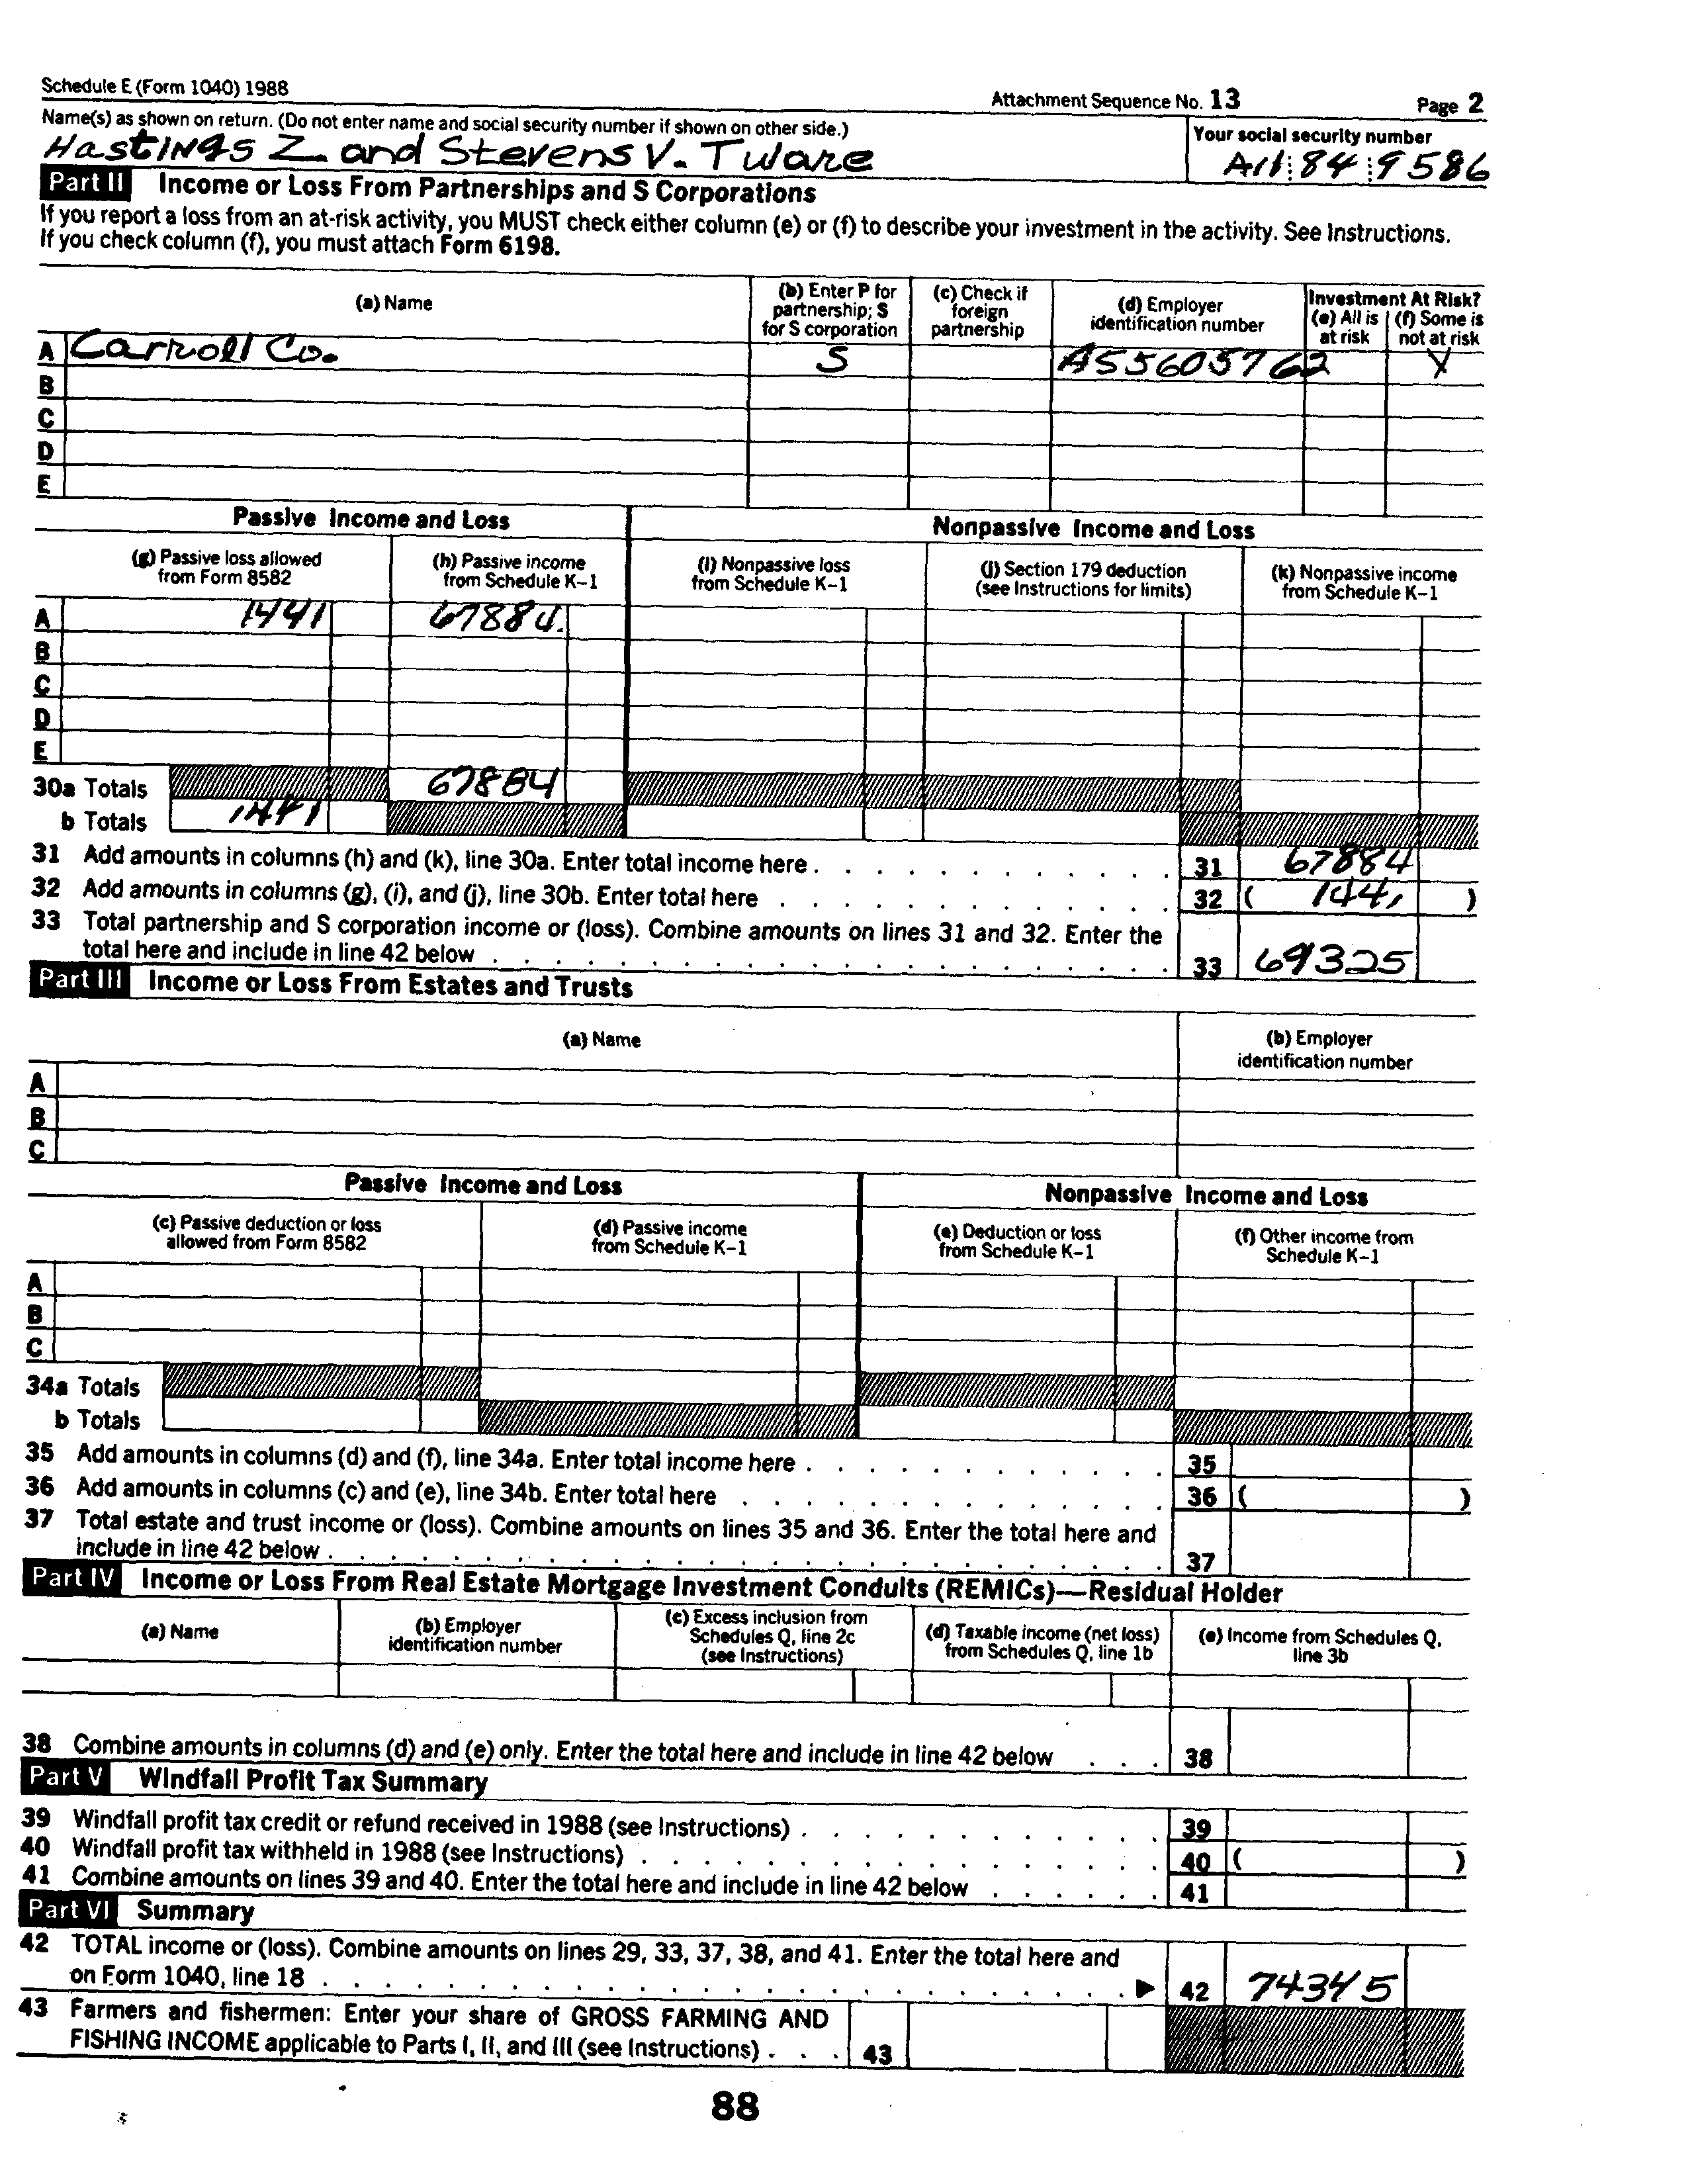 Schedule E (Form 1040) 1988
Attachment Sequence No. 13
Page 2
Name(s) as shown on return. (Do not enter name and social security number if shown on other side.)
Your social security number
Hastings Z. and Stevens V. Tware
84 9586
Part II Income or Loss From Partnerships and S Corporations
If you report a loss from an at-risk activity, you MUST check either column (e) or (f) to describe your investment in the activity. See Instructions.
If you check column (f), you must attach Form 6198.
(a) Name
(b) Enter P for partnership; S for S corporation
(c) Check if foreign partnership
(d) Employer identification number
Investment At Risk?
(e) All is at risk
(f) Some is not at risk
A Carroll Co. S AS5605762 X
B
C
D
E
Passive Income and Loss
Nonpassive Income and Loss
(g) Passive loss allowed from Form 8582
(h) Passive income from Schedule K-1
(i) Nonpassive loss from Schedule K-1
(j) Section 179 deduction (see Instructions for limits)
(k) Nonpassive income from Schedule K-1
A 1441 67884.
B
C
D
E
30a Totals 67884
b Totals 1441
31 Add amounts in columns (h) and (k), line 30a. Enter total income here . . . 31 67884
32 Add amounts in columns (g), (i), and (j), line 30b. Enter total here . . . 32 ( 1441 )
33 Total partnership and S corporation income or (loss). Combine amounts on lines 31 and 32. Enter the
total here and include in line 42 below . . . 33 69325
Part III Income or Loss From Estates and Trusts
(a) Name
(b) Employer identification number
A
B
C
Passive Income and Loss
Nonpassive Income and Loss
(c) Passive deduction or loss allowed from Form 8582
(d) Passive income from Schedule K-1
(e) Deduction or loss from Schedule K-1
(f) Other income from Schedule K-1
A
B
C
34a Totals
b Totals
35 Add amounts in columns (d) and (f), line 34a. Enter total income here . . . 35
36 Add amounts in columns (c) and (e), line 34b. Enter total here . . . 36 ( )
37 Total estate and trust income or (loss). Combine amounts on lines 35 and 36. Enter the total here and
include in line 42 below . . . 37
Part IV Income or Loss From Real Estate Mortgage Investment Conduits (REMICs)—Residual Holder
(a) Name
(b) Employer identification number
(c) Excess inclusion from Schedules Q, line 2c (see Instructions)
(d) Taxable income (net loss) from Schedules Q, line 1b
(e) Income from Schedules Q, line 3b
38 Combine amounts in columns (d) and (e) only. Enter the total here and include in line 42 below . . . 38
Part V Windfall Profit Tax Summary
39 Windfall profit tax credit or refund received in 1988 (see Instructions) . . . 39
40 Windfall profit tax withheld in 1988 (see Instructions) . . . 40 ( )
41 Combine amounts on lines 39 and 40. Enter the total here and include in line 42 below . . . 41
Part VI Summary
42 TOTAL income or (loss). Combine amounts on lines 29, 33, 37, 38, and 41. Enter the total here and
on Form 1040, line 18 . . . ▶ 42 74345
43 Farmers and fishermen: Enter your share of GROSS FARMING AND
FISHING INCOME applicable to Parts I, II, and III (see Instructions) . . . 43
88